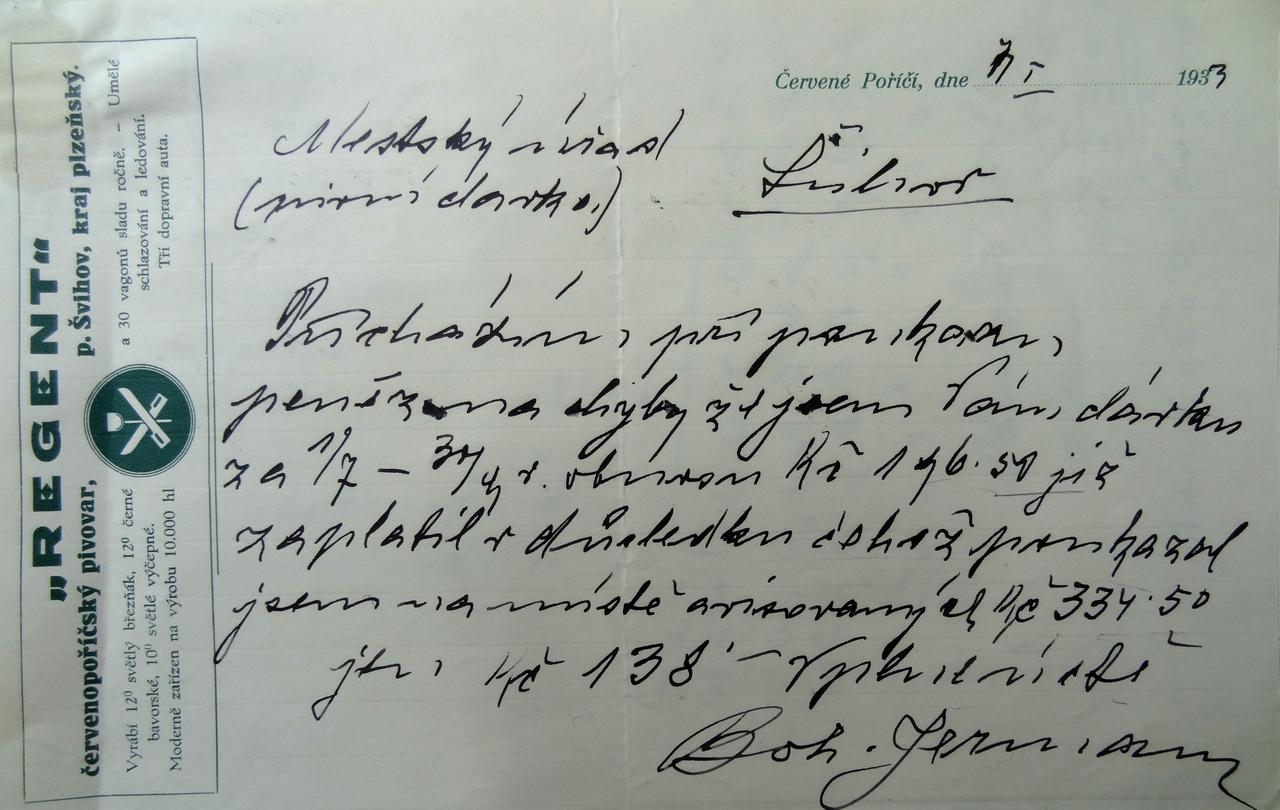 „REGENT“
červenopoříčský pivovar, p. Švihov, kraj plzeňský.
Vyrábí 12⁰ světlý březňák, 12⁰ černé bavorské, 10⁰ světlé výčepné.
Moderně zařízen na výrobu 10.000 hl
a 30 vagonů sladu ročně. – Umělé
schlazování a ledování.
Tři dopravní auta.
Červené Poříčí, dne 7 I 1933
Městský úřad
(pivní dávka)
Přícházím, při poukazu,
peněz na chyby že jsem Vám dávku
za 1/7 – 30/9 v obnosu Kč 196·50 již
zaplatil v důsledku čehož poukazal
jsem na místě avisovaných Kč 334·50
jen Kč 138·–
Boh. Jermann